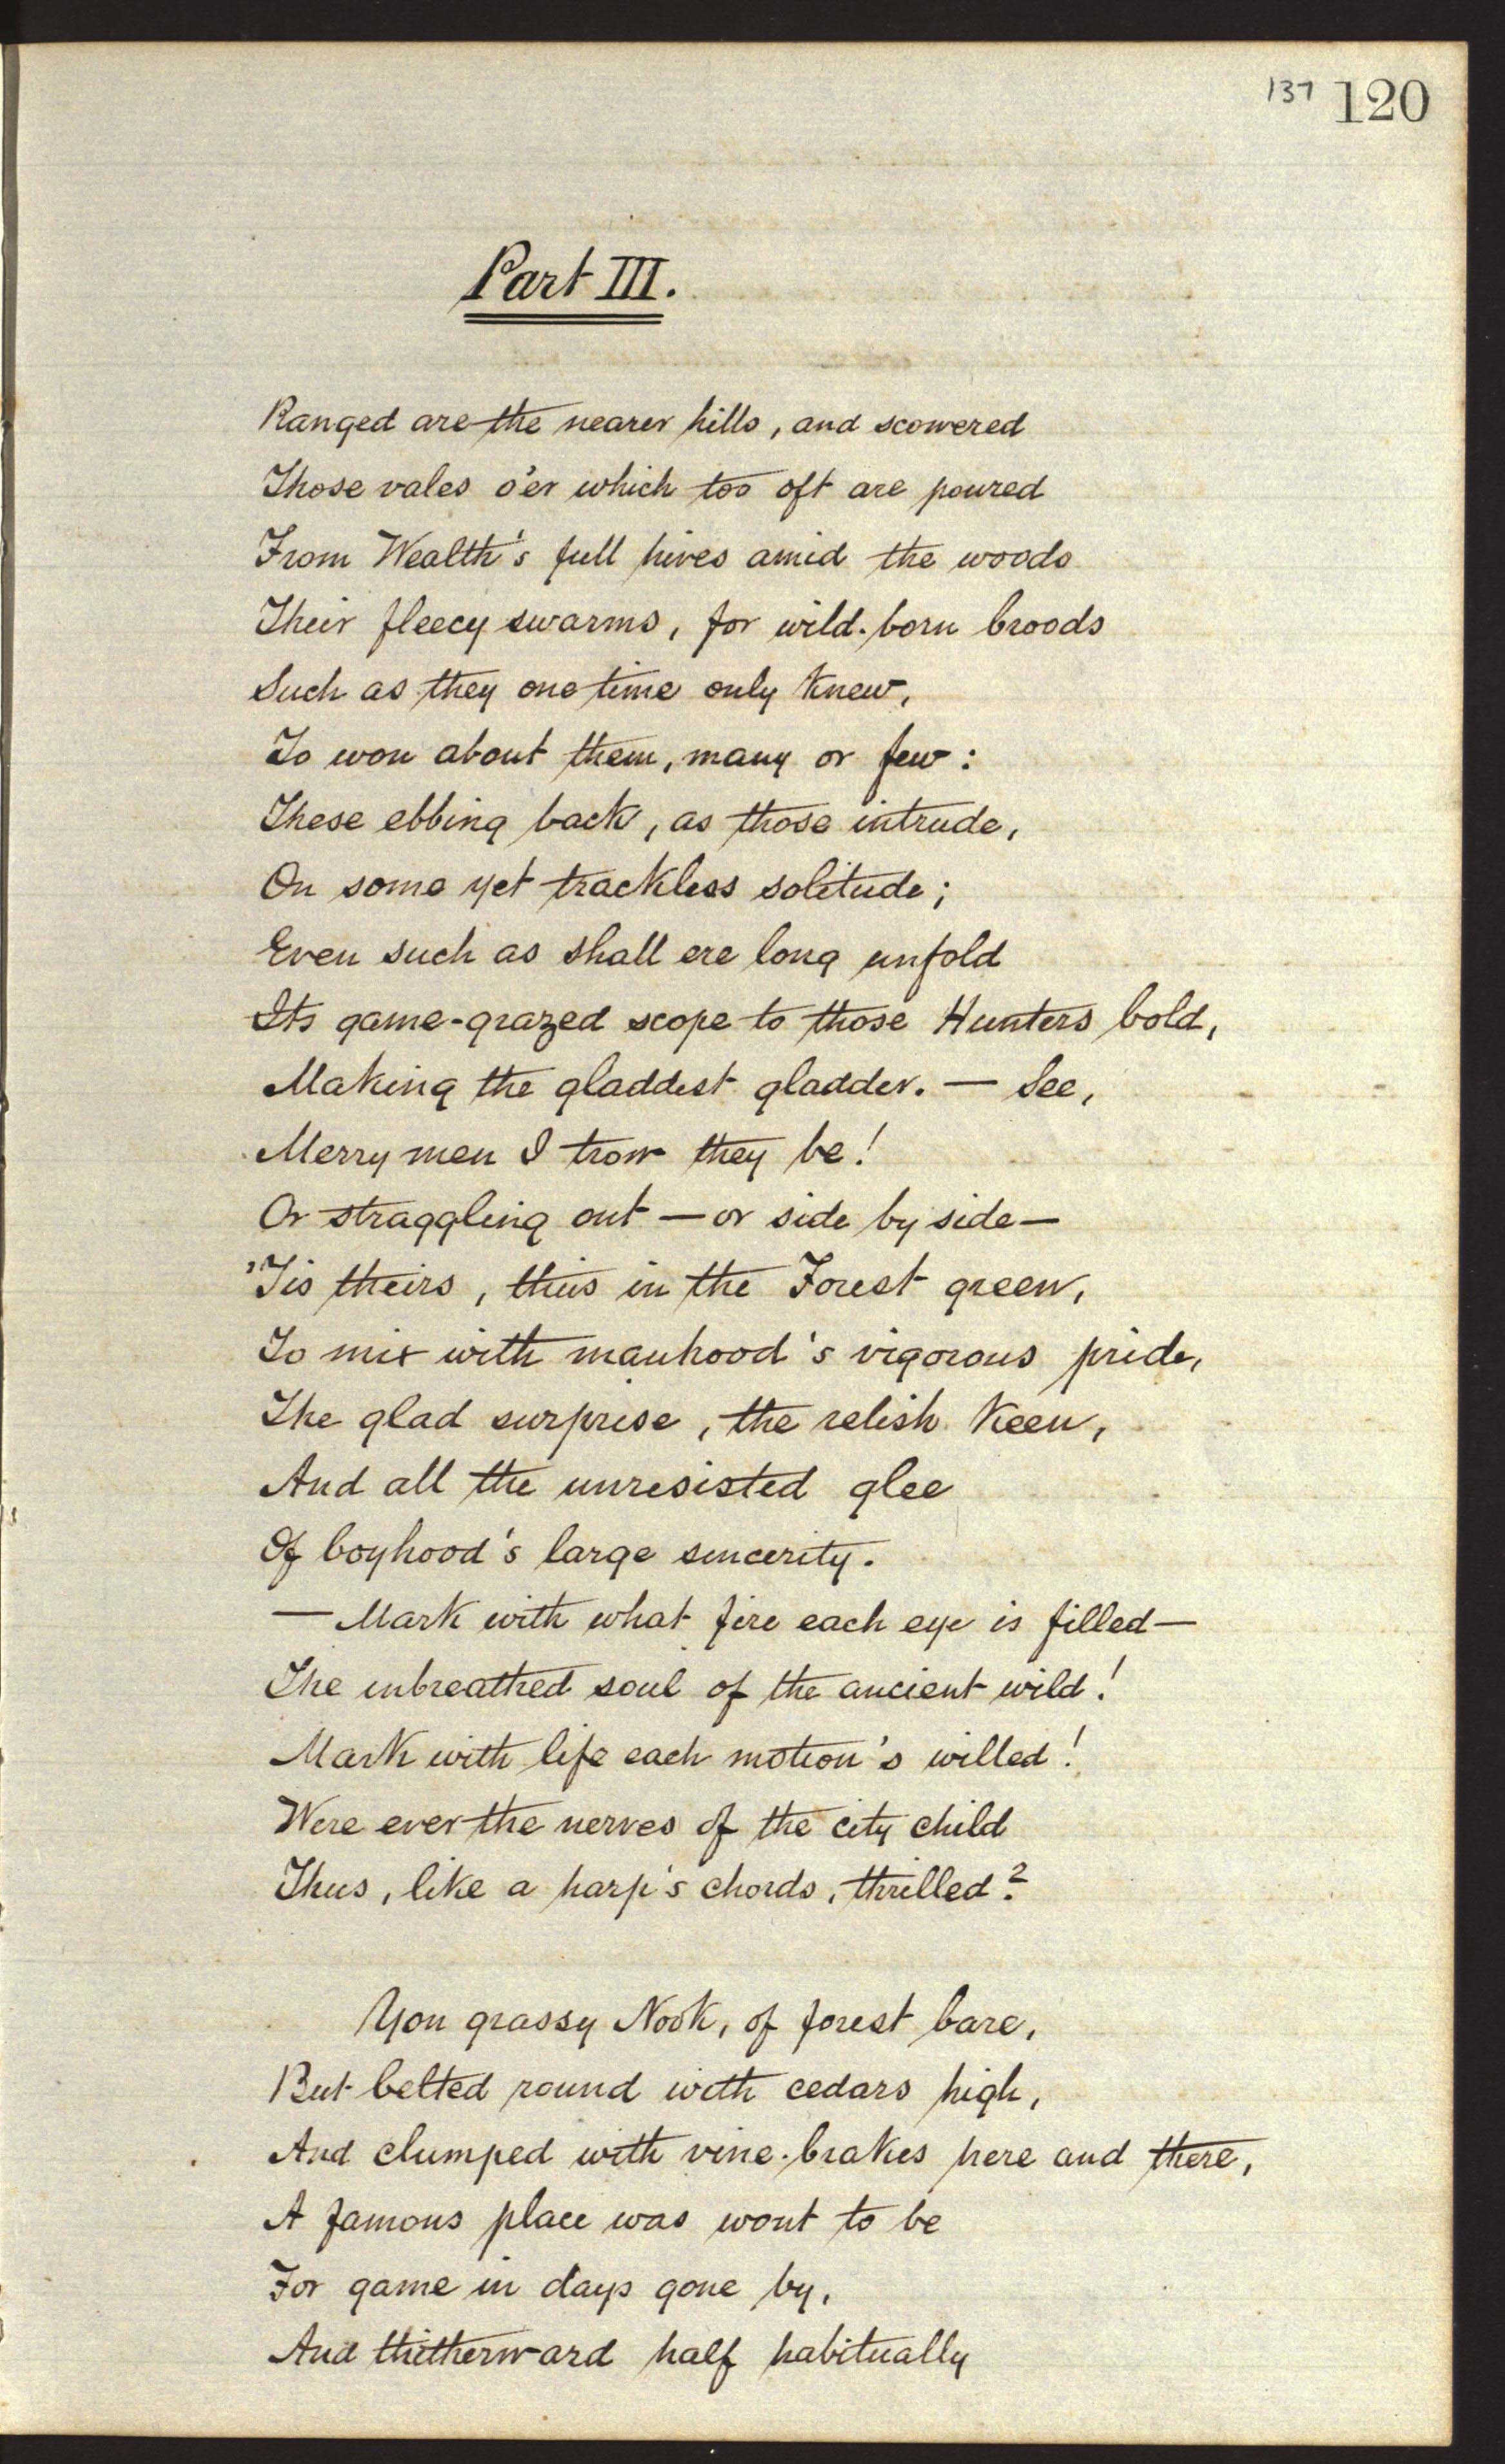 137 120
Part III.
Ranged are the nearer hills, and scowered
Those vales o'er which too oft are poured
From Wealth's full hives amid the woods
Their fleecy swarms, for wild-born broods
Such as they one time only knew,
To won about them, many or few:
These ebbing back, as those intrude,
On some yet trackless solitude;
Even such as shall ere long unfold
Its game-grazed scope to those Hunters bold,
Making the gladdest gladder. — See,
Merry men I trow they be!
Or straggling out — or side by side —
'Tis theirs, thus in the Forest green,
To mix with manhood's vigorous pride,
The glad surprise, the relish keen,
And all the unresisted glee
Of boyhood's large sincerity.
— Mark with what fire each eye is filled —
The inbreathed soul of the ancient wild!
Mark with life each motion's willed!
Were ever the nerves of the city child
Thus, like a harp's chords, thrilled?
Yon grassy Nook, of forest bare,
But belted round with cedars high,
And clumped with vine-brakes here and there,
A famous place was wont to be
For game in days gone by,
And thitherward half habitually